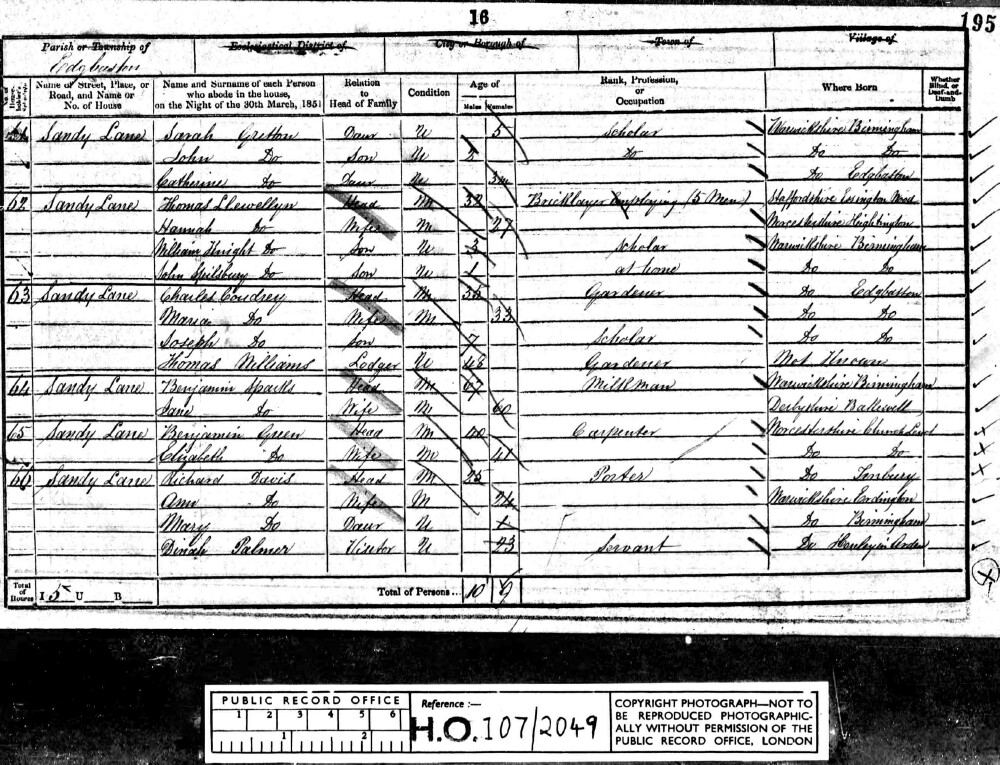 16
195
Parish or Township of
Edgbaston
Ecclesiastical District of
City or Borough of
Town of
Village of
Name of Street, Place, or Road, and Name or No. of House
Name and Surname of each Person who abode in the house, on the Night of the 30th March, 1851
Relation to Head of Family
Condition
Age of
Males Females
Rank, Profession, or Occupation
Where Born
Whether Blind, or Deaf-and-Dumb
61 Sandy Lane Sarah Gretton Daur U 5 Scholar Warwickshire Birmingham
John Do Son U 2 Do Do Do
Catherine Do Daur Un 3m Do Edgbaston
62 Sandy Lane Thomas Llewellyn Head M 32 Bricklayer Employing (5 Men) Staffordshire Essington Wood
Hannah Do Wife M 27 Worcestershire
William Knight Do Son U 3 Scholar Warwickshire Birmingham
John Spilsbury Do Son Un 1 at home Do Do
63 Sandy Lane Charles Coudrey Head M Gardener Do Edgbaston
Maria Do Wife M 33 Do Do
Joseph Do Son 7 Scholar Do Do
Thomas Williams Lodger U 48 Gardener Not Known
64 Sandy Lane Benjamin Sparks Head M 67 Milkman Warwickshire Birmingham
Jane Do Wife M 60 Derbyshire Bakewell
65 Sandy Lane Benjamin Green Head M 40 Carpenter Worcestershire Church Lench
Elizabeth Do Wife M 41 Do Do
66 Sandy Lane Richard Davis Head M 25 Porter Do Tenbury
Ann Do Wife M 24 Warwickshire Erdington
Mary Do Daur U 1 Do Birmingham
Dinah Palmer Visitor U 23 Servant Do Henley in Arden
Total of Houses I 5 U B Total of Persons... 10 9
PUBLIC RECORD OFFICE
1 2 3 4 5 6
1 2
Reference :—
H.O. 107/2049
COPYRIGHT PHOTOGRAPH—NOT TO
BE REPRODUCED PHOTOGRAPHIC-
ALLY WITHOUT PERMISSION OF THE
PUBLIC RECORD OFFICE, LONDON